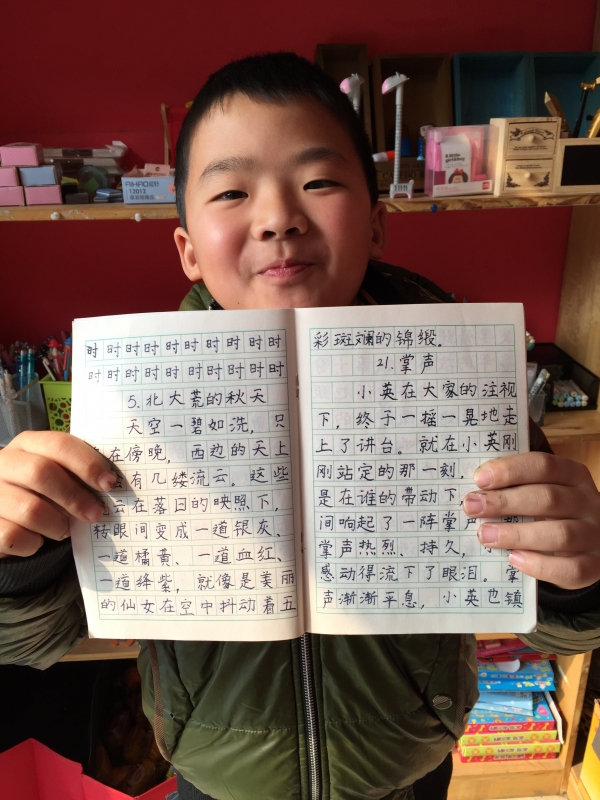 时时时时时时时时时时
时时时时时时时时时时
5.北大荒的秋天
天空一碧如洗，只
在傍晚，西边的天上
有几缕流云。这些
云在落日的映照下，
转眼间变成一道银灰、
一道橘黄、一道血红、
一道绛紫，就像是美丽
的仙女在空中抖动着五
彩斑斓的锦缎。
21.掌声
小英在大家的注视
下，终于一摇一晃地走
上了讲台。就在小英刚
刚站定的那一刻，
是在谁的带动下，
间响起了一阵掌声
掌声热烈、持久，
感动得流下了眼泪。掌
声渐渐平息，小英也镇
12012